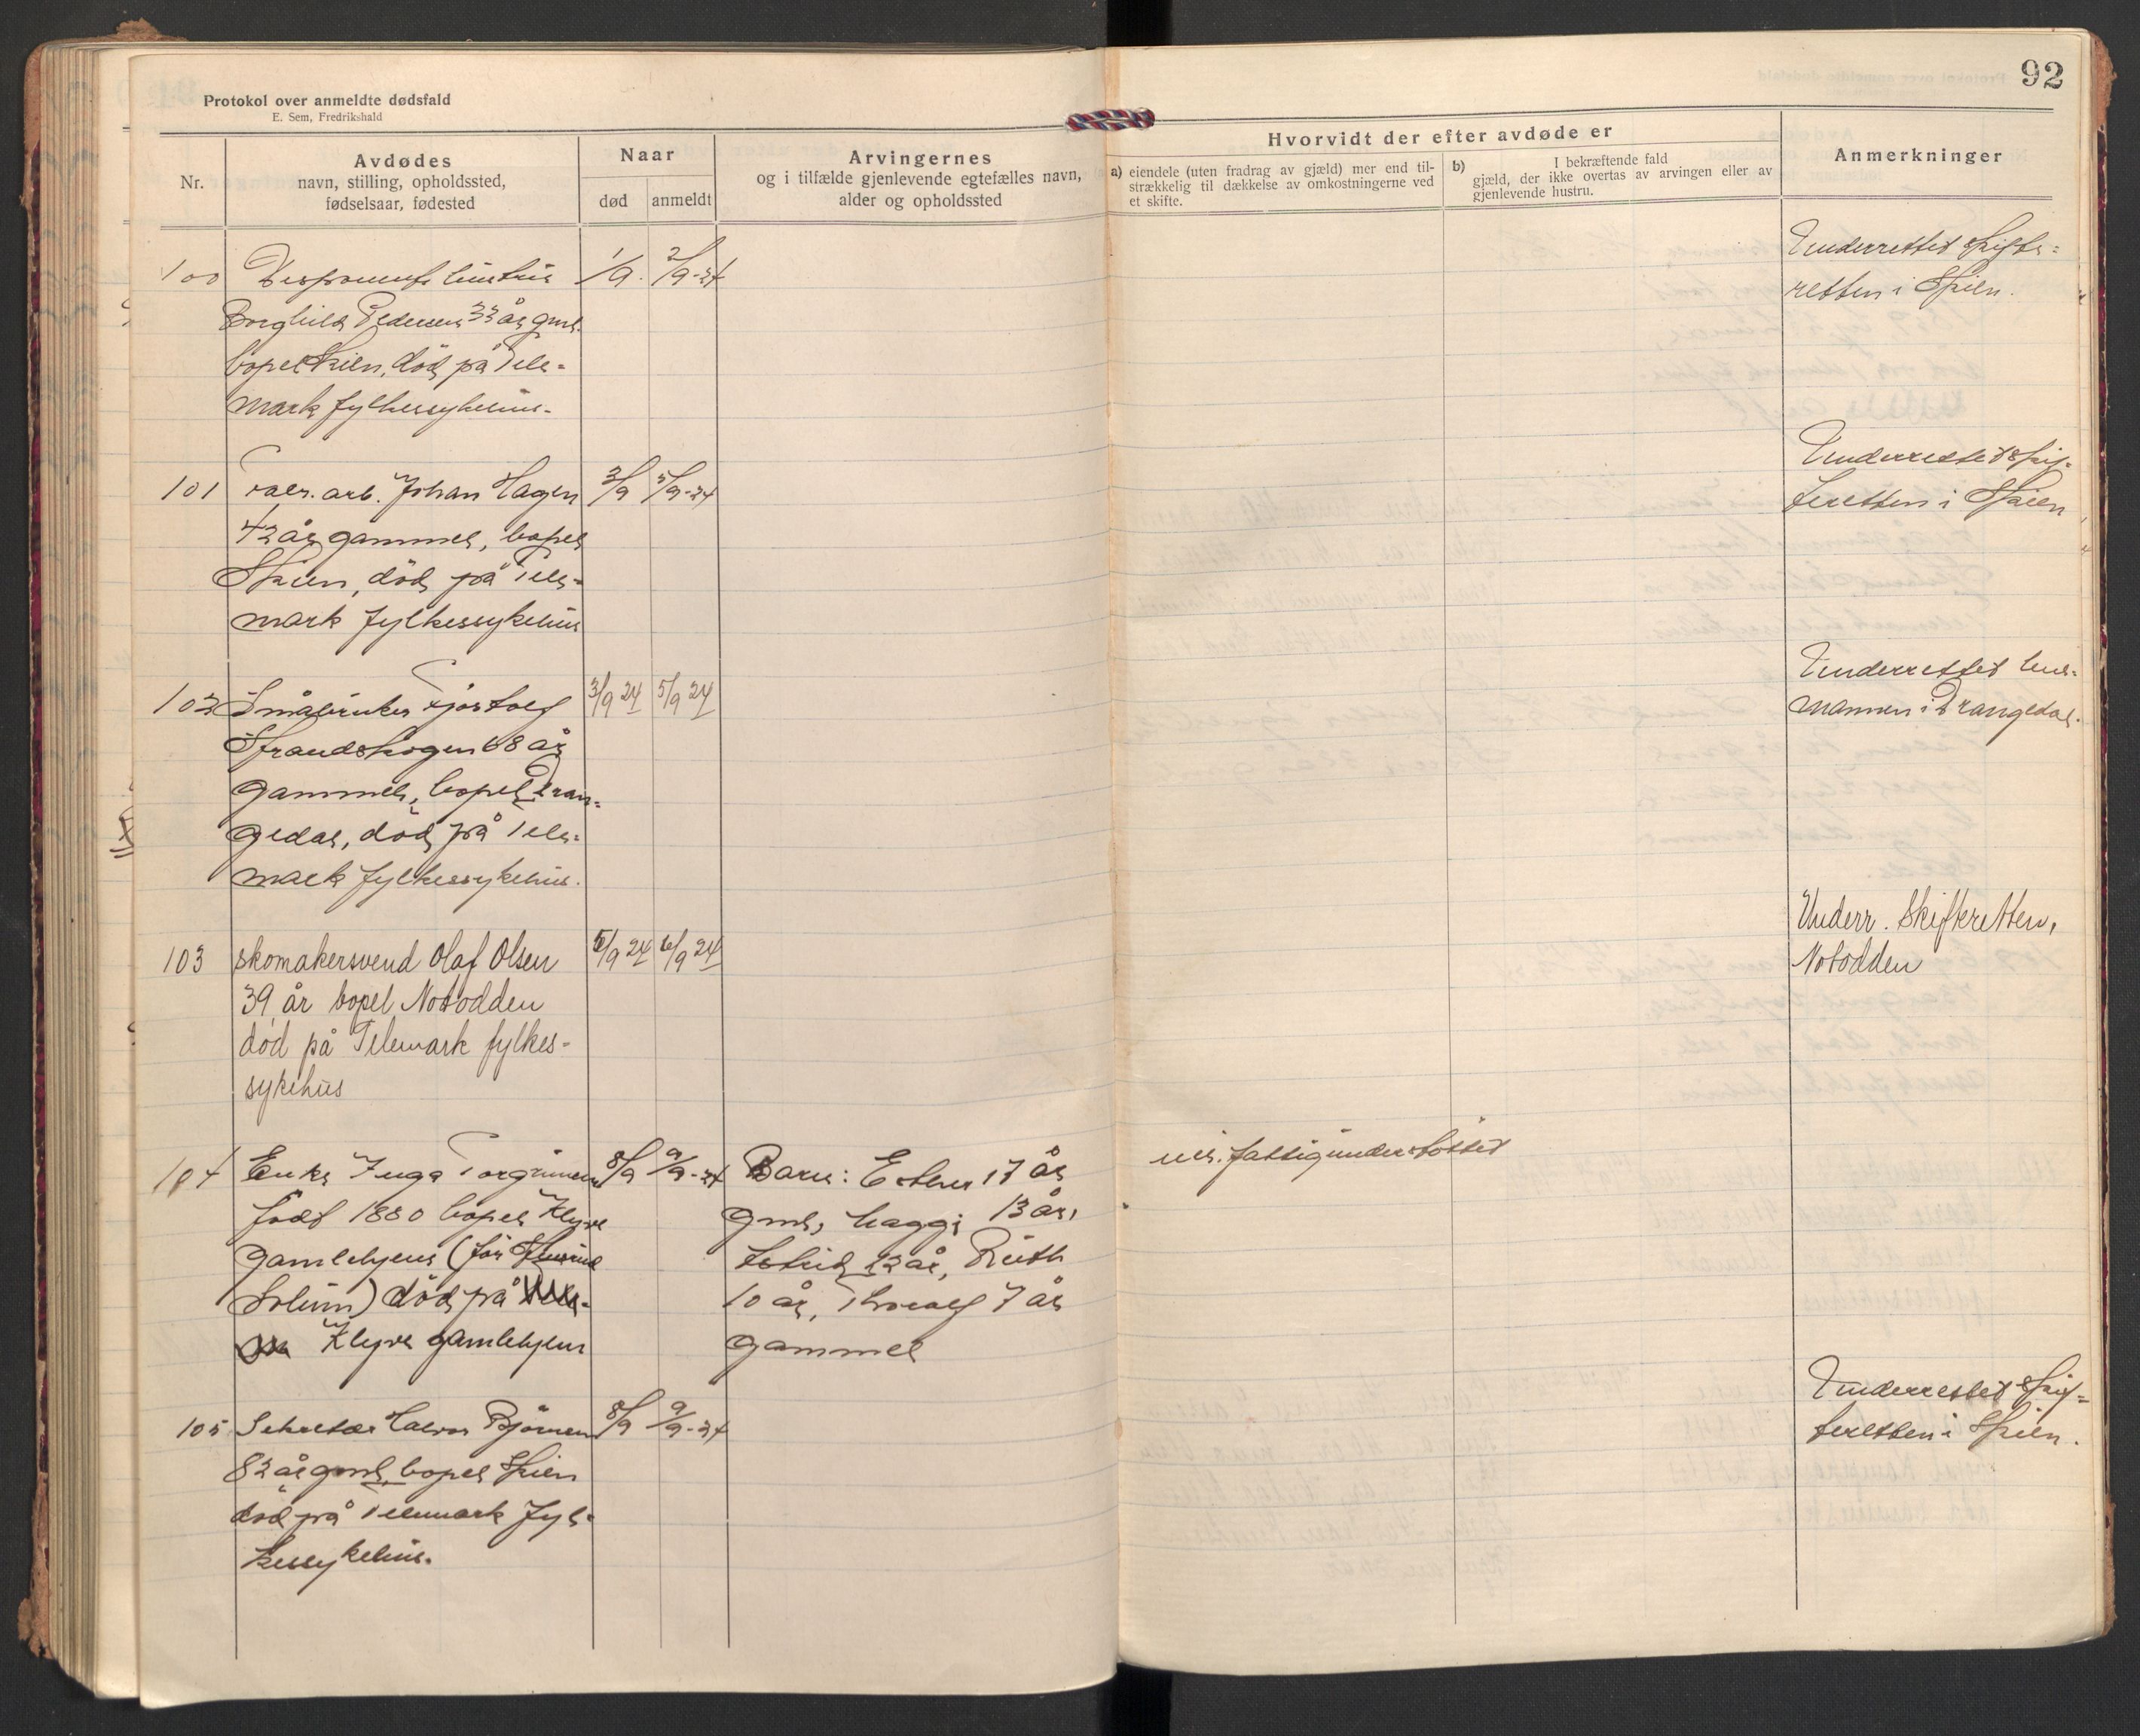 92
Protokol over anmeldte dødsfald
E. Sem, Fredrikshald
Nr.
Avdødes
navn, stilling, opholdssted,
fødselsaar, fødested
Naar
død
anmeldt
Arvingernes
og i tilfælde gjenlevende egtefælles navn,
alder og opholdssted
Hvorvidt der efter avdøde er
a) eiendele (uten fradrag av gjæld) mer end til-
strækkelig til dækkelse av omkostningerne ved
et skifte.
b) I bekræftende fald
gjæld, der ikke overtas av arvingen eller av
gjenlevende hustru.
Anmerkninger
100 hustru 1/9. 2/9-24
Borghild Pedersen 33 år gml.
bopel Skien, död på Tele-
mark fylkessykehus.
Underrettet skifte-
retten i Skien.
101 arb. Johan Hagen 3/9 5/9-24
42 år gammel, bopel
Skien, död på Tele-
mark fylkessykehus
Underrettet skif-
teretten i Skien
102 Småbruker Fjostolf 3/9 24 5/9 24
Strandskogen 68 år
gammel, bopel Dran-
gedal, död på Tele-
mark fylkessykehus.
Underrettet lens-
mannen i Drangedal.
103 skomakersvend Olaf Olsen 5/9 24 6/9 24
39 år bopel Notodden
död på Telemark fylkes-
sykehus
Underr. Skifteretten,
Notodden
104 Enke Inga Torgrimsen 8/9 9/9-24
födt 1880 bopel Klyve
gamlehjem (för
Solum) död på
Klyve gamlehjem
Barn: Esther 17 år
gml, Haggi 13 år,
Astrid 12 år, Ruth
10 år, Thoralf 7 år
gammel
nei. fattigunderstöttet
105 Sekretær Halvor Björnsen 8/9 9/9-24
82 år gml, bopel Skien
död på Telemark fyl-
kessykehus.
Underrettet skif-
teretten i Skien.